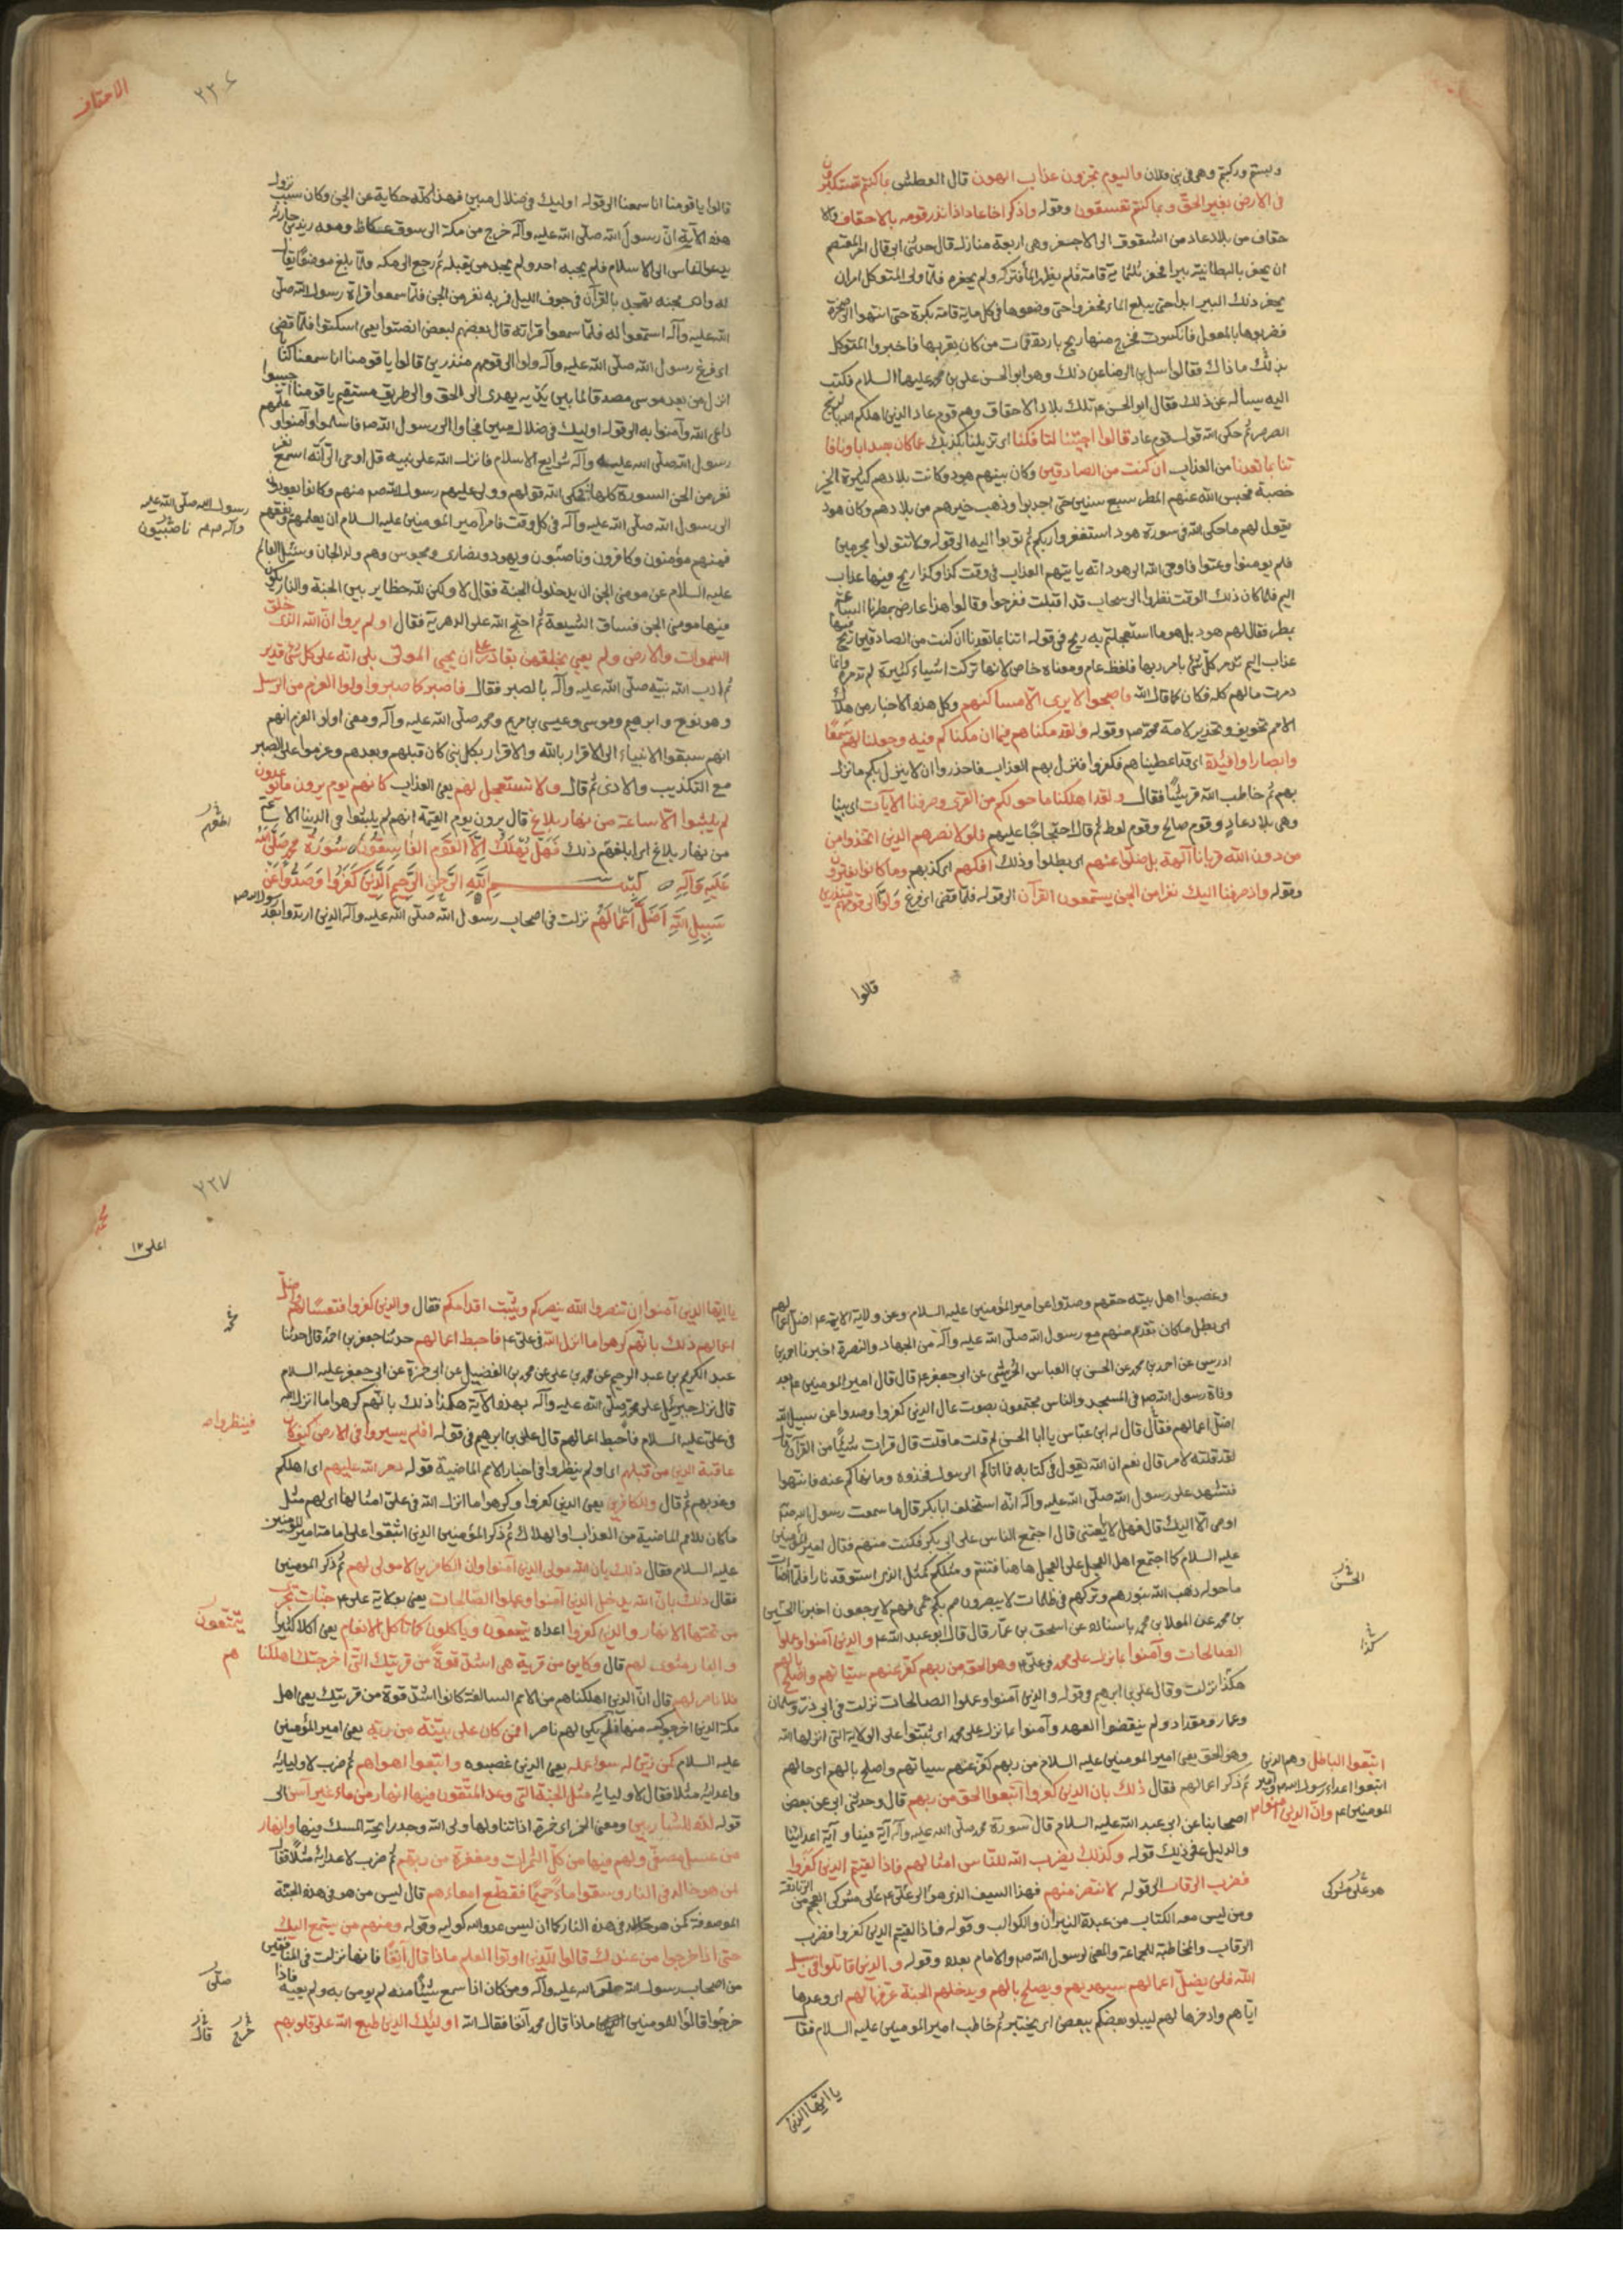 ولبستم وركبتم وهى فى بنى فلان فاليوم تجزون عذاب الهون قال العطش بما كنتم تستكبرون
فى الارض بغير الحق وبما كنتم تفسقون وقوله واذكر اخا عاد اذ انذر قومه بالاحقاف والا
حقاف من بلاد عاد من الشقوق الى الاجفر وهى اربعة منازل قال حدثنى ابى قال امر المعتصم
ان يحفر بالبطانية بير فحفروا ثلثمائة قامة فلم يظهر الماء فتركه ولم يحفره فلما ولى المتوكل امر ان
يحفر ذلك البير ابدا حتى يبلغ الماء فحفروا حتى وضعوا فى كل ماية قامة بكرة حتى انتهوا الى صخرة
فضربوها بالمعول فانكسرت فخرج منها ريح باردة فمات من كان بقربها فاخبروا المتوكل
بذلك ماذاك فقالوا سل بن الرضا عن ذلك وهو ابو الحسن على بن محمد عليهما السلام فكتب
اليه يساله عن ذلك فقال ابو الحسن ع تلك بلاد الاحقاف وهم قوم عاد الذين اهلكهم الله بالريح
الصرصر ثم حكى الله قول قوم عاد قالوا اجئتنا لتافكنا اى تزيلنا بكذبك عما كان يعبد اباؤنا فا
تنا بما تعدنا من العذاب ان كنت من الصادقين وكان نبيهم هود وكانت بلادهم كثيرة الخير
خصبة فحبس الله عنهم المطر سبع سنين حتى اجدبوا وذهب خيرهم من بلادهم وكان هود
يقول لهم ما حكى الله فى سورة هود استغفروا ربكم ثم توبوا اليه الى قوله ولا تتولوا مجرمين
فلم يومنوا وعتوا فاوحى الله الى هود انه ياتيهم العذاب فى وقت كذا وكذا ريح فيها عذاب
اليم فلما كان ذلك الوقت نظروا الى سحاب قد اقبلت ففرحوا وقالوا هذا عارض ممطرنا الساعة
بمطر فقال لهم هود بل هو ما استعجلتم به ريح فى قوله اتنا بما تعدنا ان كنت من الصادقين ريح فيها
عذاب اليم تدمر كل شئ بامر ربها فلفظه عام ومعناه خاص لانها تركت اشياء كثيرة لم تدمره وانما
دمرت مالهم كله فكان كما قال الله فاصبحوا لا يرى الا مساكنهم وكل هذه الاخبار من هلاك
الامم تخويف وتحذير لامة محمد ص وقوله ولقد مكناهم فيما ان مكناكم فيه وجعلنا لهم سمعا
وابصارا وافئدة اى قد اعطيناهم فكفروا فنزل بهم العذاب فاحذروا ان لا ينزل بكم ما نزل
بهم ثم خاطب الله قريشا فقال ولقد اهلكنا ما حولكم من القرى وصرفنا الآيات اى بينا
وهى بلاد عاد وقوم صالح وقوم لوط ثم قال احتجاجا عليهم فلولا نصرهم الذين اتخذوا من
من دون الله قربانا آلهة بل ضلوا عنهم اى بطلوا وذلك افكهم اى كذبهم وما كانوا يفترون
وقوله واذ صرفنا اليك نفرا من الجن يستمعون القرآن الى قوله فلما قضى اى فرغ ولوا الى قومهم منذرين
قالوا
الاحقاف
٢٣٦
قالوا يا قومنا انا سمعنا الى قوله اوليك فى ضلال مبين فهذا كله حكاية عن الجن وكان سبب نزول
هذه الآية ان رسول الله صلى الله عليه وآله خرج من مكة الى سوق عكاظ ومعه زيد بن حارثة
يدعوا الناس الى الاسلام فلم يجبه احد ولم يجد من يقبله ثم رجع الى مكه فلما بلغ موضعا يقال
له وادى مجنه تهجد بالقرآن فى جوف الليل فمر به نفر من الجن فلما سمعوا قراة رسول الله صلى
الله عليه وآله استمعوا له فلما سمعوا قراته قال بعضهم لبعض انصتوا يعنى اسكتوا فلما قضى
اى فرغ رسول الله صلى الله عليه وآله ولوا الى قومهم منذرين قالوا يا قومنا انا سمعنا كتابا
انزل من بعد موسى مصدقا لما بين يديه يهدى الى الحق والى طريق مستقيم يا قومنا اجيبوا
داعى الله وآمنوا به الى قوله اوليك فى ضلال مبين فجاءوا الى رسول الله ص فاسلموا وآمنوا وعلمهم
رسول الله صلى الله عليه وآله شرايع الاسلام فانزل الله على نبيه قل اوحى الى انه استمع نفر
نفر من الجن السورة كلها فحكى الله قولهم وولى عليهم رسول الله ص منهم وكانوا يعودون
الى رسول الله صلى الله عليه وآله فى كل وقت فامر امير المومنين عليه السلام ان يعلمهم ويفقههم
رسول الله صلى الله عليه
وآله منهم ناصبيون
فمنهم مؤمنون وكافرون وناصبون ويهود ونصارى ومجوس وهم ولد الجان وسئل العالم
عليه السلام عن مومنى الجن ان يدخلون الجنة فقال لا ولكن لله حظاير بين الجنة والنار يكون
فيها مومنى الجن وفساق الشيعة ثم احتج الله على الدهرية فقال اولم يروا ان الله الذى خلق
السموات والارض ولم يعى بخلقهن بقادر على ان يحيى الموتى بلى انه على كل شئ قدير
ثم ادب الله نبيه صلى الله عليه وآله بالصبر فقال فاصبر كما صبروا اولوا العزم من الرسل
وهو نوح وابرهيم وموسى وعيسى بن مريم ومحمد صلى الله عليه وآله ومعنى اولوا العزم انهم
انهم سبقوا الانبياء الى الاقرار بالله والاقرار بكل نبى كان قبلهم وبعدهم وعزموا على الصبر
مع التكذيب والاذى ثم قال ولا تستعجل لهم يعنى العذاب كانهم يوم يرون ما يوعدون
لم يلبثوا الا ساعة من نهار بلاغ قال يرون يوم القيمة انهم لم يلبثوا فى الدينا الا ساعة
من نهار بلاغ اى ابلغهم ذلك فهل يهلك الا القوم الفاسقون سورة محمد صلى الله
عليه وآله بسم الله الرحمن الرحيم الذين كفروا وصدوا عن
سبيل الله اضل اعمالهم نزلت فى اصحاب رسول الله صلى الله عليه وآله الذين ارتدوا بعد رسول الله ص
وغصبوا اهل بيته حقهم وصدوا عن امير المؤمنين عليه السلام وعن ولاية الايمة ع اضل اعمالهم
اى بطل ما كان تقدم منهم مع رسول الله صلى الله عليه وآله من الجهاد والنصرة اخبرنا احمد بن
ادريس عن احمد بن محمد عن الحسن بن العباس الحريشى عن ابى جعفر ع قال قال امير المومنين ع بعد
وفاة رسول الله ص فى المسجد والناس مجتمعون بصوت عال الذين كفروا وصدوا عن سبيل الله
اضل اعمالهم فقال له ابن عباس يا ابا الحسن لم قلت ما قلت قال قرات شيئا من القرآن قال
لقد قلته لامر قال نعم ان الله يقول فى كتابه فما اتاكم الرسول فخذوه وما نهاكم عنه فانتهوا
فتشهد على رسول الله صلى الله عليه وآله انه استخلف ابا بكر قال ما سمعت رسول الله ص
اوصى الا اليك قال فهلا بايعتنى قال اجتمع الناس على ابى بكر فكنت منهم فقال امير المؤمنين
عليه السلام كما اجتمع اهل العجل على العجل هاهنا فتنتم ومثلكم كمثل الذى استوقد نارا فلما اضاءت
ما حوله ذهب الله بنورهم وتركهم فى ظلمات لا يبصرون صم بكم عمى فهم لا يرجعون اخبرنا الحسين
بن محمد عن المعلا بن محمد باسناده عن اسحق بن عمار قال قال ابو عبد الله ع والذين آمنوا وعملوا
الصالحات وآمنوا بما نزل على محمد فى على وهو الحق من ربهم كفر عنهم سيئاتهم واصلح بالهم
هكذا نزلت وقال على بن ابرهيم وقوله والذين آمنوا وعملوا الصالحات نزلت فى ابى ذر وسلمان
وعمار ومقداد ولم ينقضوا العهد وآمنوا بما نزل على محمد اى ثبتوا على الولاية التى انزلها الله
وهو الحق يعنى امير المومنين عليه السلام من ربهم كفر عنهم سيياتهم واصلح بالهم اى حالهم
ثم ذكر اعمالهم فقال ذلك بان الذين كفروا اتبعوا الحق من ربهم قال وحدثنى ابى عن بعض
اتبعوا الباطل وهم الذين
اتبعوا اعداء رسول الله ص وامير
المومنين ع وان الذين آمنوا
اصحابنا عن ابى عبد الله عليه السلام قال سورة محمد صلى الله عليه وآله آية فينا وآية اعدائنا
والدليل على ذلك قوله وكذلك يضرب الله للناس امثالهم فاذا لقيتم الذين كفروا
فضرب الرقاب الى قوله لانتصر منهم فهذا السيف الذى هو على مشركى العجم من الزنادقة
ومن ليس معه الكتاب من عبدة النيران والكواكب وقوله فاذا لقيتم الذين كفروا فضرب
الرقاب والمخاطبة للجماعة والمعنى لرسول الله ص والامام بعده وقوله والذين قاتلوا فى سبيل
الله فلن يضل اعمالهم سيهديهم ويصلح بالهم ويدخلهم الجنة عرفها لهم اى وعدها
اياهم وادخرها لهم ليبلو بعضكم ببعض اى يختبر ثم خاطب امير المومنين عليه السلام فقال
الحسن
كذا
هو على مشركى
يا ايها الذين
محمد
٢٣٧
اعلى ١٢
يا ايها الذين آمنوا ان تنصروا الله ينصركم ويثبت اقدامكم فقال والذين كفروا فتعسا لهم واضل
اعمالهم ذلك بانهم كرهوا ما انزل الله فى على ع فاحبط اعمالهم حدثنا جعفر بن احمد قال حدثنا
عبد الكريم بن عبد الرحيم عن محمد بن على عن محمد بن الفضيل عن ابى حمزة عن ابى جعفر عليه السلام
قال نزل جبرئيل على محمد صلى الله عليه وآله بهذه الآية هكذا ذلك بانهم كرهوا ما انزل الله
فى على عليه السلام فاحبط اعمالهم قال على بن ابرهيم فى قوله افلم يسيروا فى الارض
فينظروا
عاقبة الذين من قبلهم اى اولم ينظروا فى اخبار الامم الماضية قوله دمر الله عليهم اى اهلكهم
وعذبهم ثم قال وللكافرين يعنى الذين كفروا وكرهوا ما انزل الله فى على امثالها اى لهم مثل
ما كان للامم الماضية من العذاب والهلاك ثم ذكر المؤمنين الذين اثبتوا على امامة امير المومنين
عليه السلام فقال ذلك بان الله مولى الذين آمنوا وان الكافرين لا مولى لهم ثم ذكر المومنين
فقال ذلك بان الله يدخل الذين آمنوا وعملوا الصالحات يعنى بولاية على ع جنات تجرى
من تحتها الانهار والذين كفروا اعداه يتمتعون وياكلون كما تاكل الانعام يعنى اكلا كثيرا
يتمتعون
والنار مثوى لهم قال وكاين من قرية هى اشد قوة من قريتك التى اخرجتك اهلكناهم
فلا ناصر لهم قال ان الذين اهلكناهم من الامم السالفة كانوا اشد قوة من قريتك يعنى اهل
مكة الذين اخرجوك منها فلم يكن لهم ناصر افمن كان على بينة من ربه يعنى امير المؤمنين
عليه السلام كمن زين له سوء عمله يعنى الذين غصبوه واتبعوا اهواهم ثم ضرب لاوليائه
واعدائه مثلا فقال لاوليائه مثل الجنة التى وعد المتقون فيها انهار من ماء غير آسن الى
قوله لذة للشاربين ومعنى الخمر اى خمرة اذا تناولها ولى الله وجد رايحة المسك فيها وانهار
من عسل مصفى ولهم فيها من كل الثمرات ومغفرة من ربهم ثم ضرب لاعدائه مثلا فقال
كمن هو خالد فى النار وسقوا ماء حميما فقطع امعاءهم قال ليس من هو فى هذه الجنة
الموصوفة كمن هو خالد فى هذه النار كما ان ليس عدو الله كوليه وقوله ومنهم من يستمع اليك
حتى اذا خرجوا من عندك قالوا للذين اوتوا العلم ماذا قال آنفا فانها نزلت فى المنافقين
من اصحاب رسول الله صلى الله عليه وآله ومن كان اذا سمع شيئا منه لم يومن به ولم يعيه فاذا
خرجوا قالوا للمومنين ماذا قال محمد آنفا فقال الله اوليك الذين طبع الله على قلوبهم
صلى
خرج قال